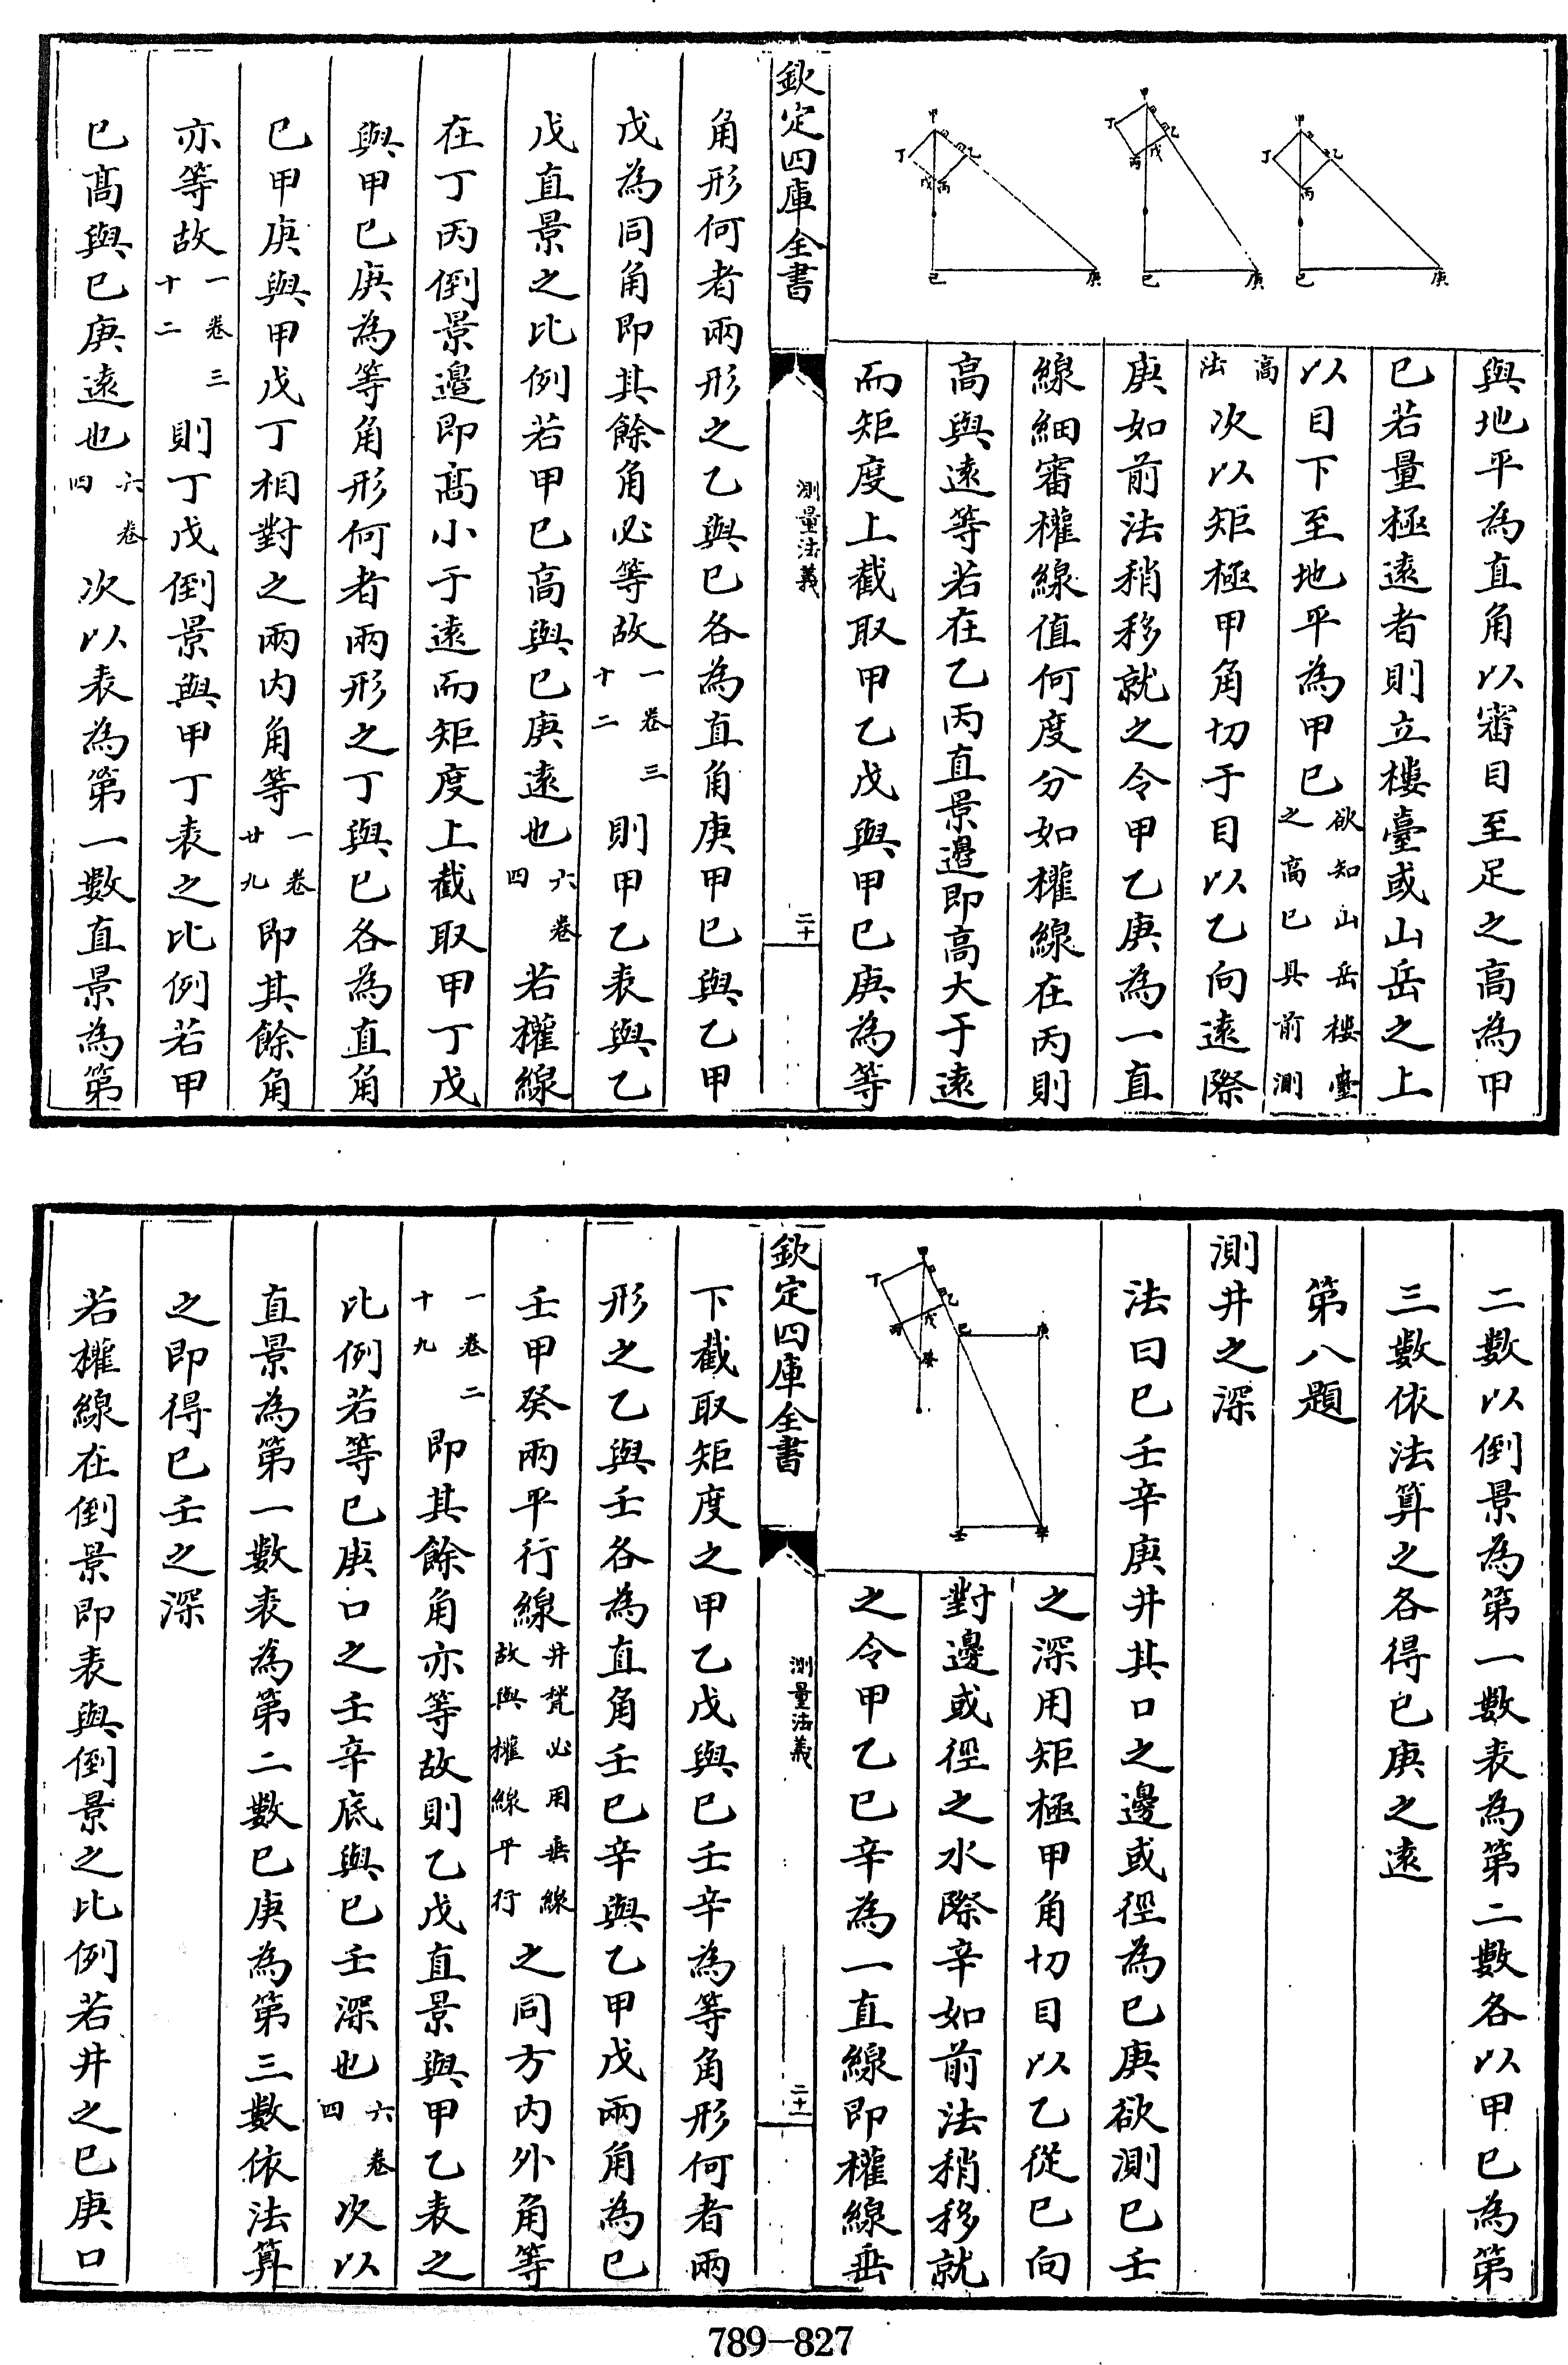 與地平為直角以審目至足之高為甲
巳若量極逺者則立樓臺或山岳之上
以目下至地平為甲巳欲知山岳樓臺之高巳具前測
高法次以矩極甲角切于目以乙向逺際
庚如前法稍移就之令甲乙庚為一直
線細審權線值何度分如權線在丙則
高與逺等若在乙丙直景邊即高大于逺
而矩度上截取甲乙戊與甲巳庚為等
欽定四庫全書
測量法義
二十
角形何者兩形之乙與巳各為直角庚甲巳與乙甲
戊為同角即其餘角必等故一卷三十二則甲乙表與乙
戊直景之比例若甲巳高與巳庚逺也六卷四若權線
在丁丙倒景邊即高小于逺而矩度上截取甲丁戊
與甲巳庚為等角形何者兩形之丁與巳各為直角
巳甲庚與甲戊丁相對之兩内角等一卷廿九即其餘角
亦等故一卷三十二則丁戊倒景與甲丁表之比例若甲
巳高與巳庚逺也六卷四次以表為第一數直景為第
甲
乙
丙
丁
戊
巳
庚
甲
乙
丙
丁
戊
巳
庚
甲
乙
丙
丁
巳
庚
二數以倒景為第一數表為第二數各以甲巳為第
三數依法算之各得巳庚之逺
第八題
測井之深
法曰巳壬辛庚井其口之邊或徑為巳庚欲測巳壬
之深用矩極甲角切目以乙從巳向
對邊或徑之水際辛如前法稍移就
之令甲乙巳辛為一直線即權線垂
欽定四庫全書
測量法義
二十一
下截取矩度之甲乙戊與巳壬辛為等角形何者兩
形之乙與壬各為直角壬巳辛與乙甲戊兩角為巳
壬甲癸兩平行線井甃必用垂線故與權線平行之同方内外角等
一卷二十九即其餘角亦等故則乙戊直景與甲乙表之
比例若等巳庚口之壬辛底與巳壬深也六卷四次以
直景為第一數表為第二數巳庚為第三數依法算
之即得巳壬之深
若權線在倒景即表與倒景之比例若井之巳庚口
甲
乙
丙
丁
戊
癸
巳
庚
壬
辛
789-827